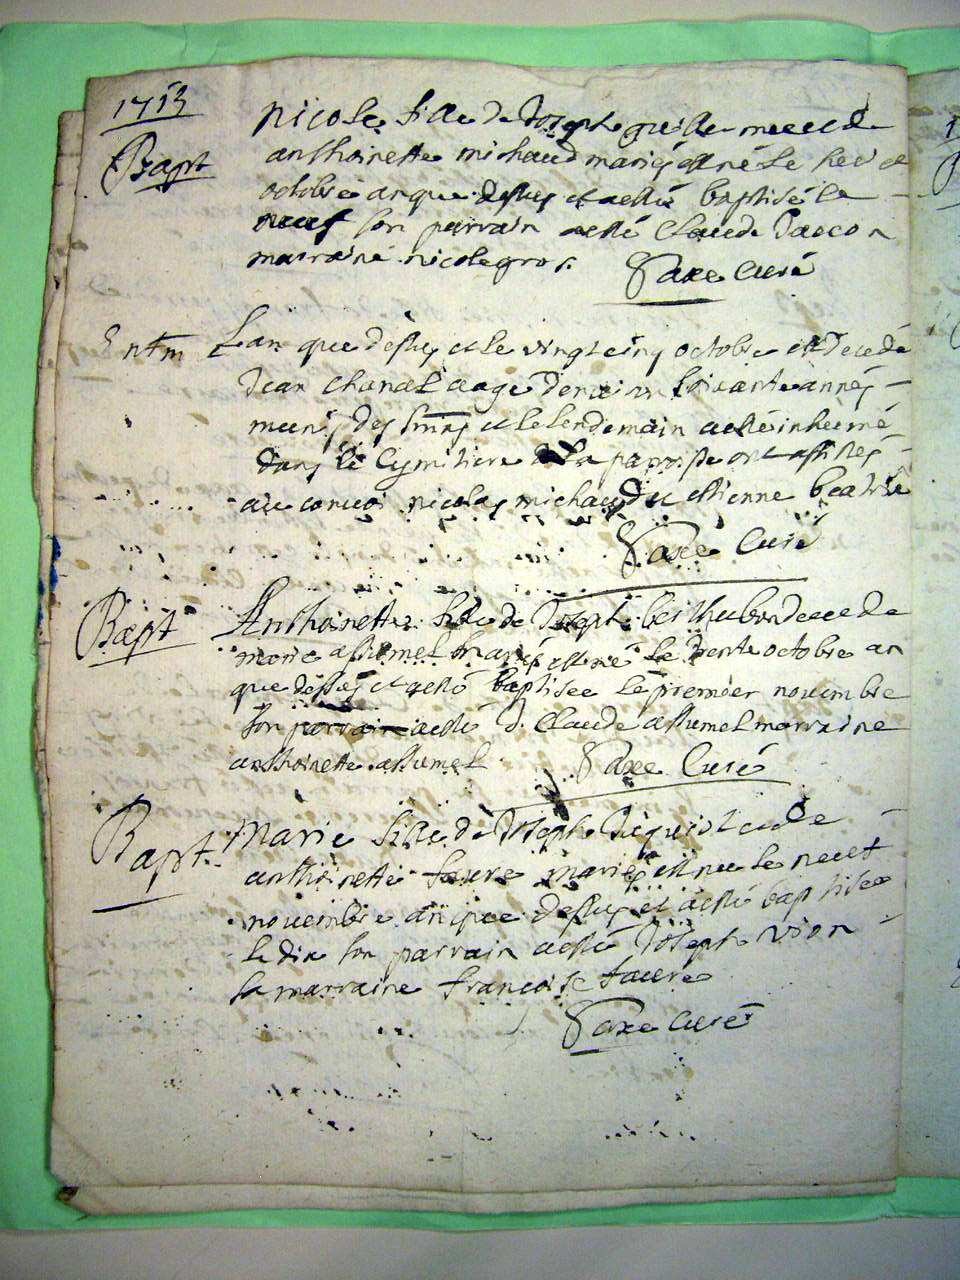 1713
Bapt
Nicole fille de Joseph guille meeede
anthoinette michaud mariés est né le
octobre an que dessus et aesté baptisé le
neuf son parrain aesté Claude Jaecon
marraine nicole gros. Saxe Curé
Entm Lan que dessus et le vingt cinq octobre est Decedé
Jean chanal aagé denviron soixante années
muni des smns et le lendemain aesté inhumé
dans le Cymitiere de la paroisse ont assistés
au convoi nicolas michaud et estienne beatrix
Saxe Curé
Bapt Anthoinette fille de Joseph et de
marie assumel mariés est né le trente octobre an
que dessus et aesté baptisee le premier novembre
son parrain aesté J. Claude assumel marraine
anthoinette assumel Saxe Curé
Bapt. Marie fille de Joseph et de
anthoinette faure mariés est nee le neuf
novembre an que dessus et aesté baptisee
le dix son parrain aesté Joseph vion
sa marraine francoise faure
Saxe Curé